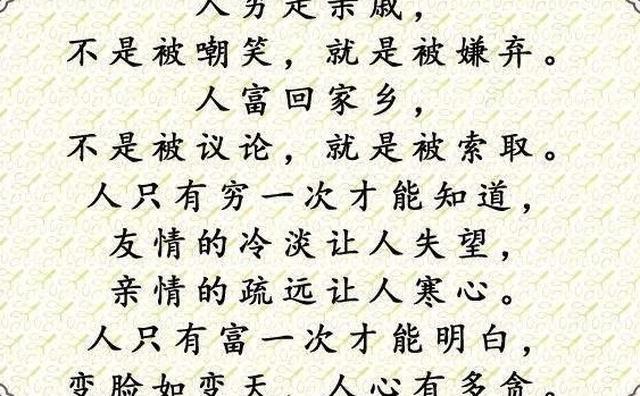 人穷走亲戚，
不是被嘲笑，就是被嫌弃。
人富回家乡，
不是被议论，就是被索取。
人只有穷一次才能知道，
友情的冷淡让人失望，
亲情的疏远让人寒心。
人只有富一次才能明白，
变脸如变天，人心有多贪。